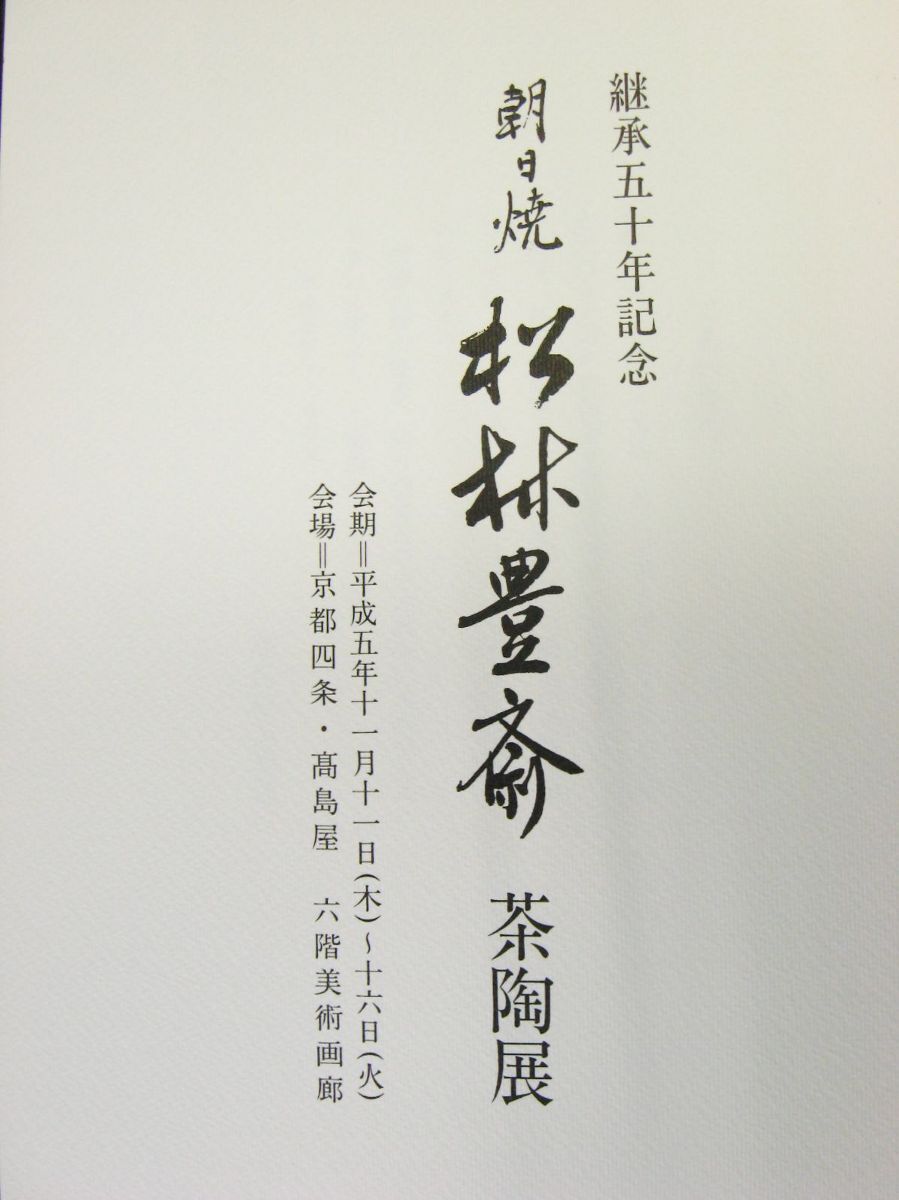 継承五十年記念
朝日焼 松林豊斎 茶陶展
会期＝平成五年十一月十一日(木)〜十六日(火)
会場＝京都四条・髙島屋 六階美術画廊